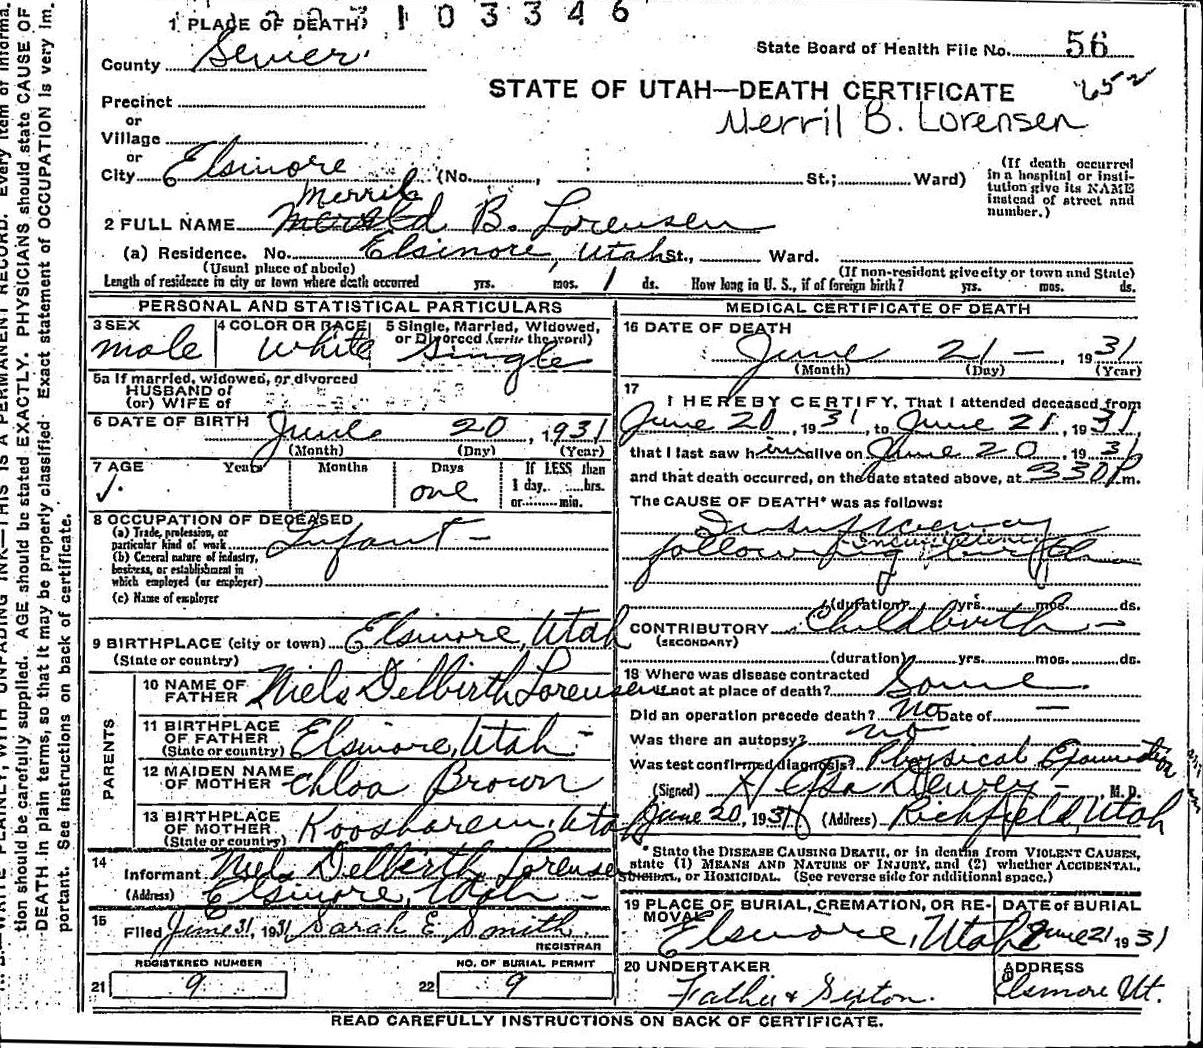 1 PLACE OF DEATH
103346
County Sevier
State Board of Health File No. 56
STATE OF UTAH—DEATH CERTIFICATE
652
Precinct
Merril B. Lorensen
or
Village
or
City Elsinore (No. , St.; Ward)
(If death occurred in a hospital or institution give its NAME instead of street and number.)
Merril
2 FULL NAME B. Lorensen
(a) Residence. No. Elsinore, Utah St., Ward.
(Usual place of abode) (If non-resident give city or town and State)
Length of residence in city or town where death occurred yrs. mos. 1 ds. How long in U. S., if of foreign birth? yrs. mos. ds.
PERSONAL AND STATISTICAL PARTICULARS
3 SEX 4 COLOR OR RACE 5 Single, Married, Widowed, or Divorced (write the word)
male white Single
5a If married, widowed, or divorced
HUSBAND of
(or) WIFE of
6 DATE OF BIRTH June 20, 1931
(Month) (Day) (Year)
7 AGE Years Months Days If LESS than
1 day, hrs.
one or min.
8 OCCUPATION OF DECEASED
(a) Trade, profession, or particular kind of work Infant -
(b) General nature of industry, business, or establishment in which employed (or employer)
(c) Name of employer
9 BIRTHPLACE (city or town) Elsinore, Utah
(State or country)
PARENTS
10 NAME OF FATHER Niels Delbirth Lorensen
11 BIRTHPLACE OF FATHER Elsinore, Utah -
(State or country)
12 MAIDEN NAME OF MOTHER Chloa Brown
13 BIRTHPLACE OF MOTHER Koosharem, Utah
(State or country)
14
Informant Niels Delbirth Lorensen
(Address) Elsinore, Utah -
15
Filed June 31, 1931 Sarah E. Smith
REGISTRAR
REGISTERED NUMBER NO. OF BURIAL PERMIT
21 9 22 9
MEDICAL CERTIFICATE OF DEATH
16 DATE OF DEATH
June 21 - , 1931
(Month) (Day) (Year)
17
I HEREBY CERTIFY, That I attended deceased from
June 20, 1931, to June 21, 1931
that I last saw him alive on June 20, 1931
and that death occurred, on the date stated above, at 330 P m.
The CAUSE OF DEATH* was as follows:
Insufficiency
following birth
(duration) yrs. mos. ds.
CONTRIBUTORY Childbirth -
(SECONDARY)
(duration) yrs. mos. ds.
18 Where was disease contracted
if not at place of death? Same
Did an operation precede death? no Date of —
Was there an autopsy? no
Was test confirmed diagnosis? Physical Examination
(Signed) Dewey - , M. D.
June 20, 1931 (Address) Richfield, Utah
* State the DISEASE CAUSING DEATH, or in deaths from VIOLENT CAUSES,
state (1) MEANS AND NATURE OF INJURY, and (2) whether ACCIDENTAL,
SUICIDAL, or HOMICIDAL. (See reverse side for additional space.)
19 PLACE OF BURIAL, CREMATION, OR REMOVAL DATE OF BURIAL
Elsinore, Utah June 21 1931
20 UNDERTAKER ADDRESS
Father & Sexton. Elsinore Ut.
READ CAREFULLY INSTRUCTIONS ON BACK OF CERTIFICATE.
WRITE PLAINLY, WITH UNFADING INK—THIS IS A PERMANENT RECORD. Every item of informa-
tion should be carefully supplied. AGE should be stated EXACTLY. PHYSICIANS should state CAUSE OF
DEATH in plain terms, so that it may be properly classified. Exact statement of OCCUPATION is very im-
portant. See instructions on back of certificate.